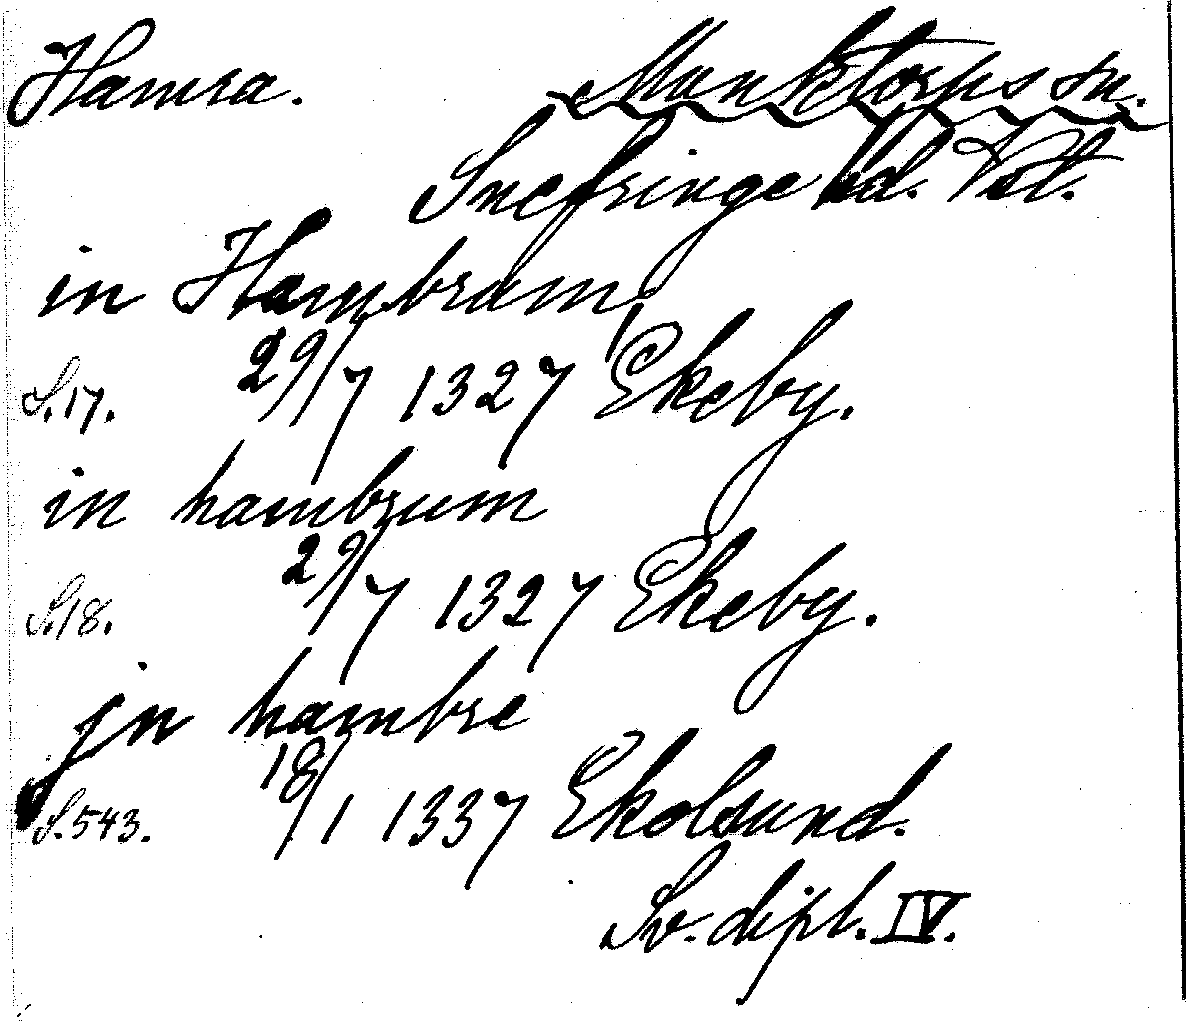 Hamra. Munktorps sn.
Snefringe hd. Vstl.
in Hambram,
S.17. 29/7 1327 Ekeby.
in hambrum
S.18. 29/7 1327 Ekeby.
jn hambre
S.543. 18/1 1337 Ekolsund.
Sv. dipl. IV.